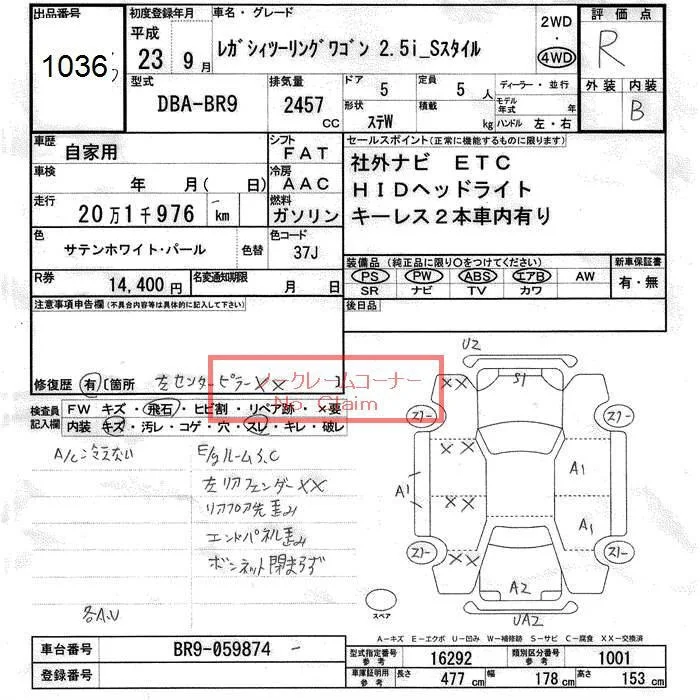 出品番号
1036
初度登録年月
平成
23 9月
車名・グレード
レガシィツーリングワゴン 2.5i_Sスタイル
2WD
・
4WD
評価点
R
外装 内装
B
型式
DBA-BR9
排気量
2457
cc
ドア
5
定員
5 人
形状
ステW
積載
kg
ディーラー・並行
モデル年式 年
ハンドル 左・右
車歴
自家用
シフト
FAT
車検
年 月( 日)
冷房
AAC
走行
20万1千976 km
燃料
ガソリン
色
サテンホワイト・パール
色替
色コード
37J
R券
14,400円
名変通知期限
月 日
セールスポイント(正常に機能するものに限ります)
社外ナビ ETC
HIDヘッドライト
キーレス2本車内有り
装備品(純正品に限り○をつけてください)
PS PW ABS エアB AW
SR ナビ TV カワ
新車保証書
有・無
後日品
注意事項申告欄(不具合内容等は具体的に記入して下さい)
修復歴 有 [箇所 左センターピラーXX ]
ノークレームコーナー
No Claim
検査員記入欄
FW キズ・飛石・ヒビ割・リペア跡・×要
内装 キズ・汚レ・コゲ・穴・スレ・キレ・破レ
A/C冷えない
E/gルームS.C
左リアフェンダーXX
リアフロア先歪み
エンドパネル歪み
ボンネット閉まらず
各A.U
U2
S1
XX
スリー
スリー
XX
A1
A1
XX
A1
スリー
XX
スリー
A2
UA2
スペア
A－キズ E－エクボ U－凹み W－補修跡 S－サビ C－腐食 XX－交換済
車台番号
BR9-059874
登録番号
型式指定番号
参考
16292
類別区分番号
参考
1001
車庫証明用
参考
長さ
477 cm
幅
178 cm
高さ
153 cm